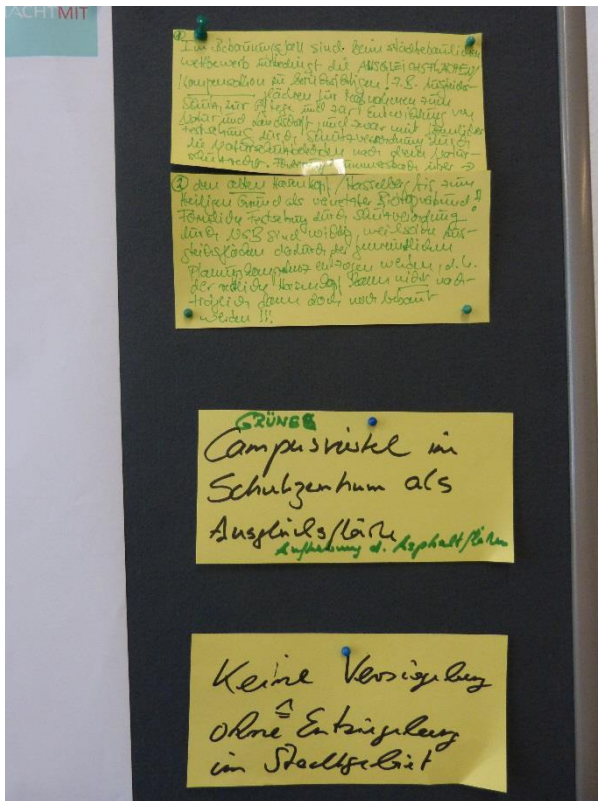 MACHTMIT
① Im Bebauungsfall sind beim städtebaulichen
wettbewerb unbedingt die AUSGLEICHSFLÄCHEN/
Kompensation zu berücksichtigen! z.B.
Flächen für Maßnahmen zum
Schutz, zur Pflege und zur Entwicklung von
Natur und Landschaft, und zwar mit förmlicher
Festsetzung durch Schutzverordnung durch
die Naturschutzbehörden nach dem Natur-
schutzrecht. über →
② den alten Hasenkopf/Hasselberg bis zum
Heiligen Grund als vernetzter Biotopverbund!
Förmliche Festsetzung durch Schutzverordnung
durch NSB sind wichtig, weil solche Aus-
gleichsflächen dadurch der gemeindlichen
Planungskompetenz entzogen werden, d.h.
der restliche Hasenkopf kann nicht nach-
träglich dann doch noch bebaut
werden!!!
GRÜNES
Campusviertel im
Schulzentrum als
Ausgleichsfläche
Aufbrechung d. Asphaltflächen
Keine Versiegelung
ohne Entsiegelung
im Stadtgebiet